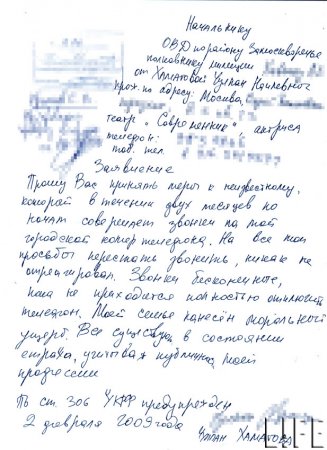 Начальнику
ОВД по району Замоскворечье
полковнику милиции
от Хаматовой Чулпан Наилевны
прож. по адресу: Москва,
театр "Современник", актриса
телефон:
моб. тел.
Заявление
Прошу Вас принять меры к неизвестному,
который в течении двух месяцев по
ночам совершает звонки на мой
городской номер телефона. На все мои
просьбы перестать звонить, никак не
отреагировал. Звонки бесконечные,
пока не приходится полностью отключать
телефон. Моей семье нанесён моральный
ущерб. Все существуем в состоянии
страха, учитывая публичность моей
профессии
По ст. 306 УК РФ предупрежден
2 февраля 2009 года
Чулпан Хаматова
LIFE